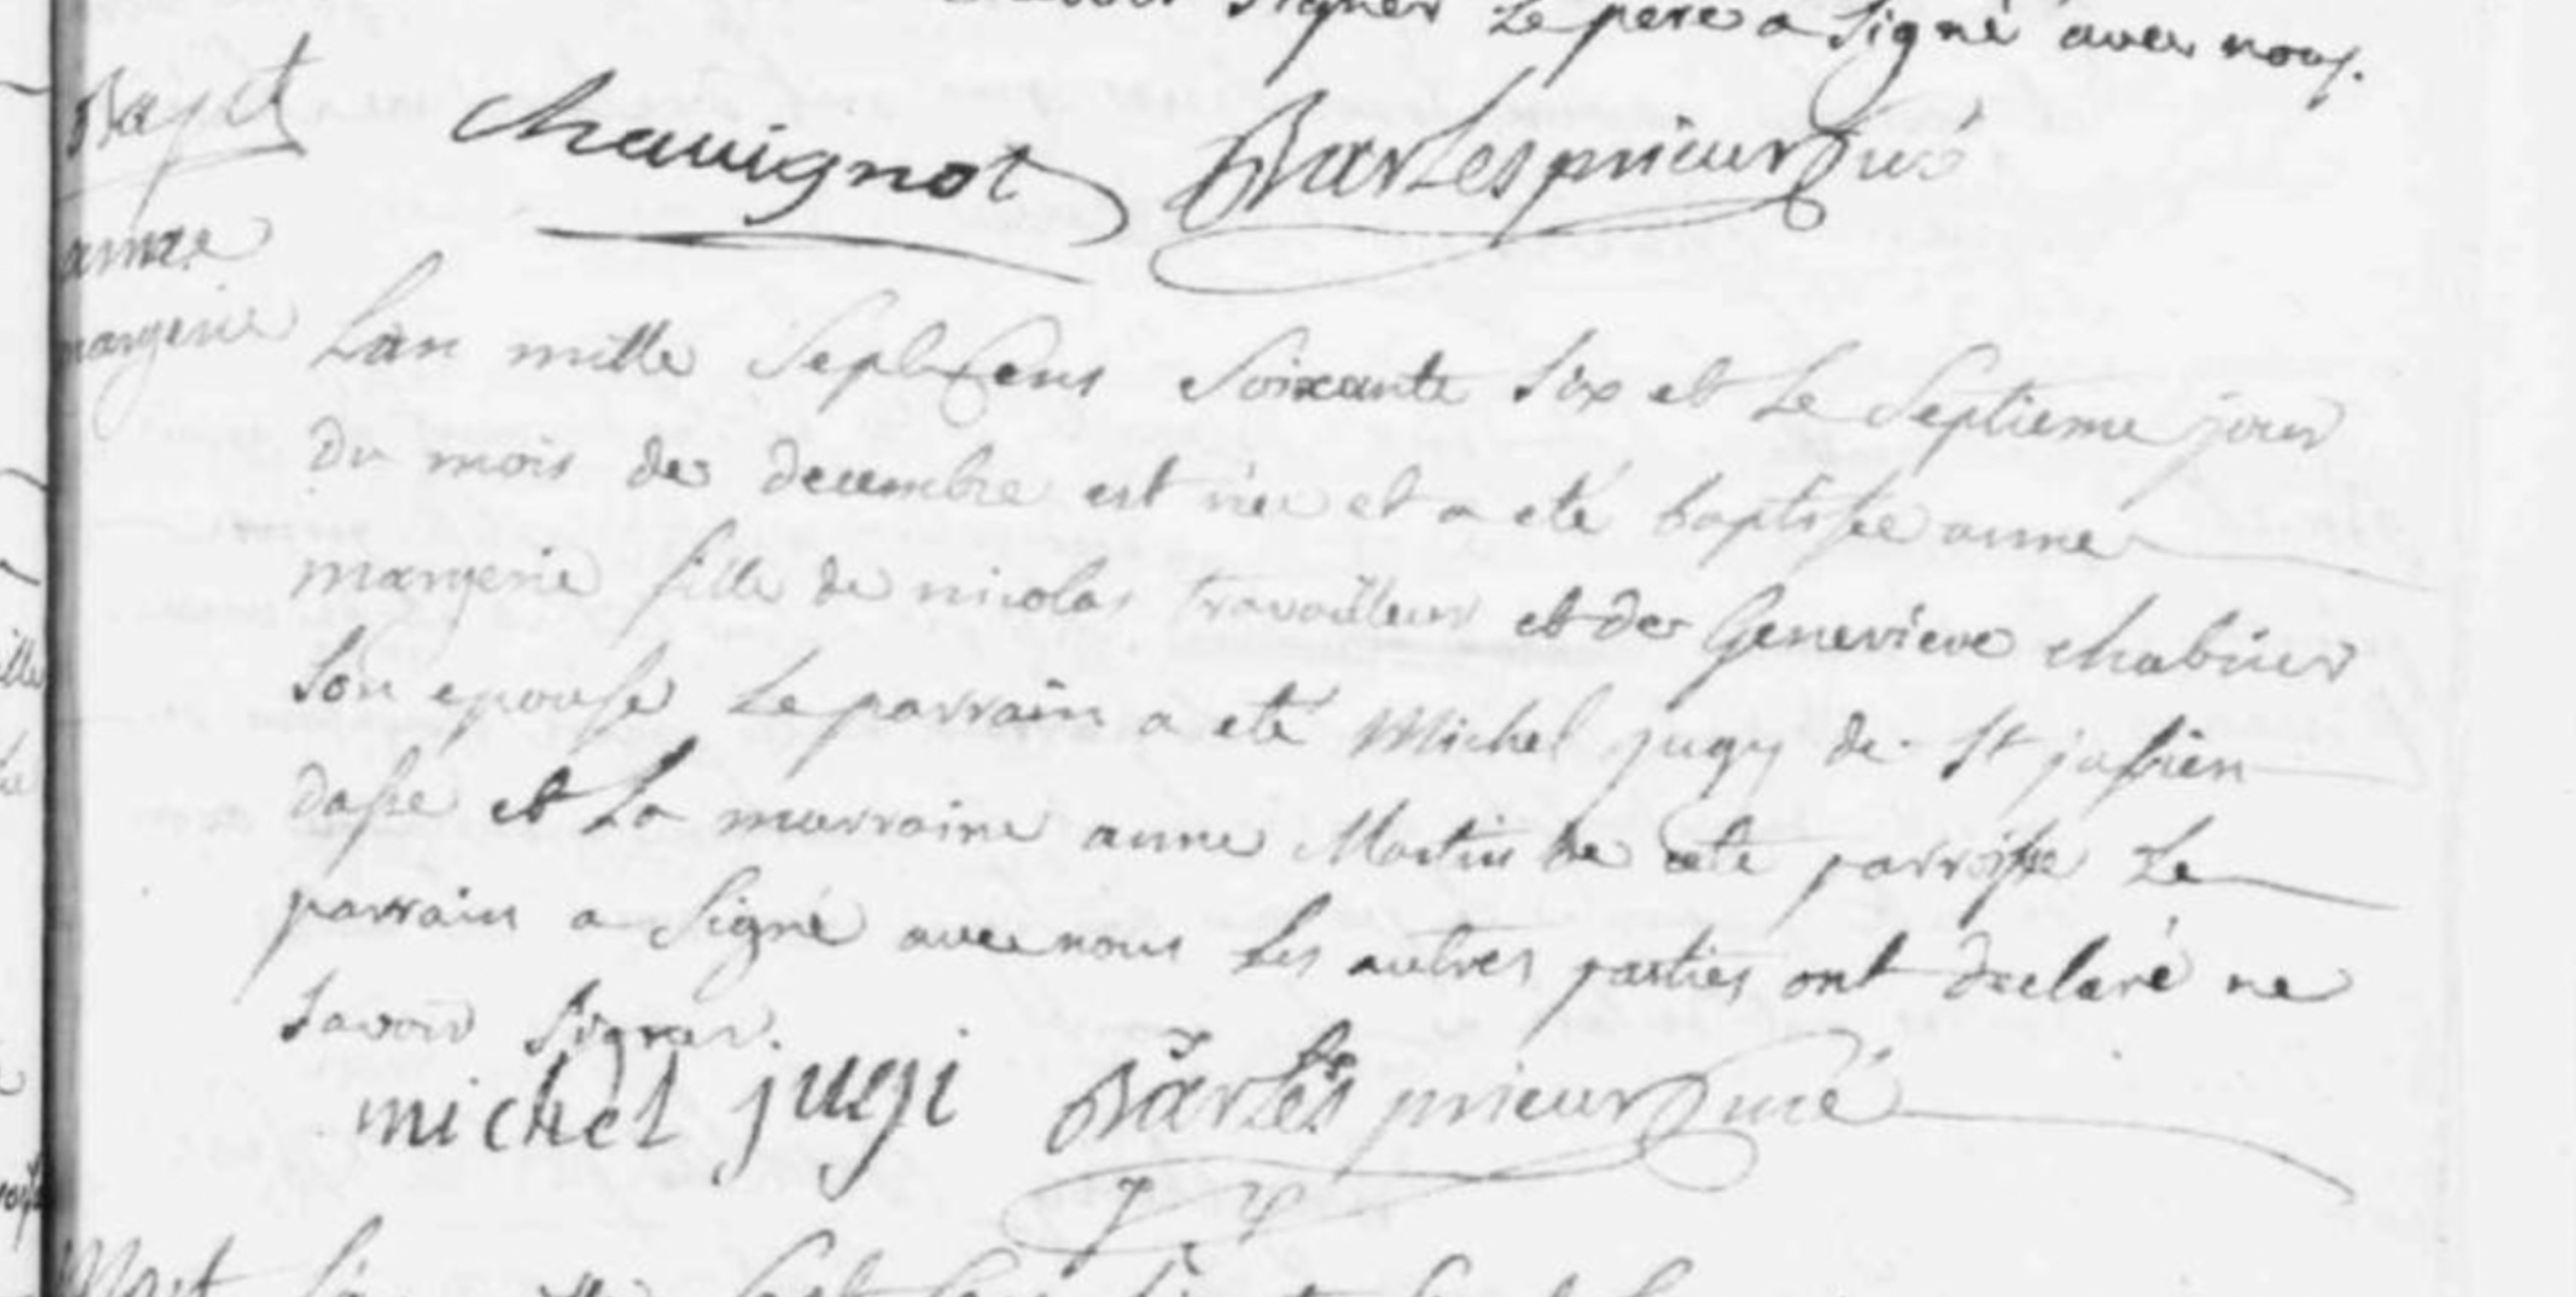 signer Le pere a signé avec nous.
Bapt
chauignot Bartes prieur Curé
anne
margerie
L'an mille Sept Cens Soixante Six et Le Septieme jour
Du mois de decembre est née et a eté baptisée anne
margerie fille de nicolas travailleur et de Genevieve chabrier
Son epouse Le parrain a eté Michel jugy de St julien
dasse et La marraine anne Martin de cete parroisse Le
parrain a Signé avec nous Les autres parties ont declaré ne
Savoir Signer.
michel jugi Bartes prieur Curé
Mort